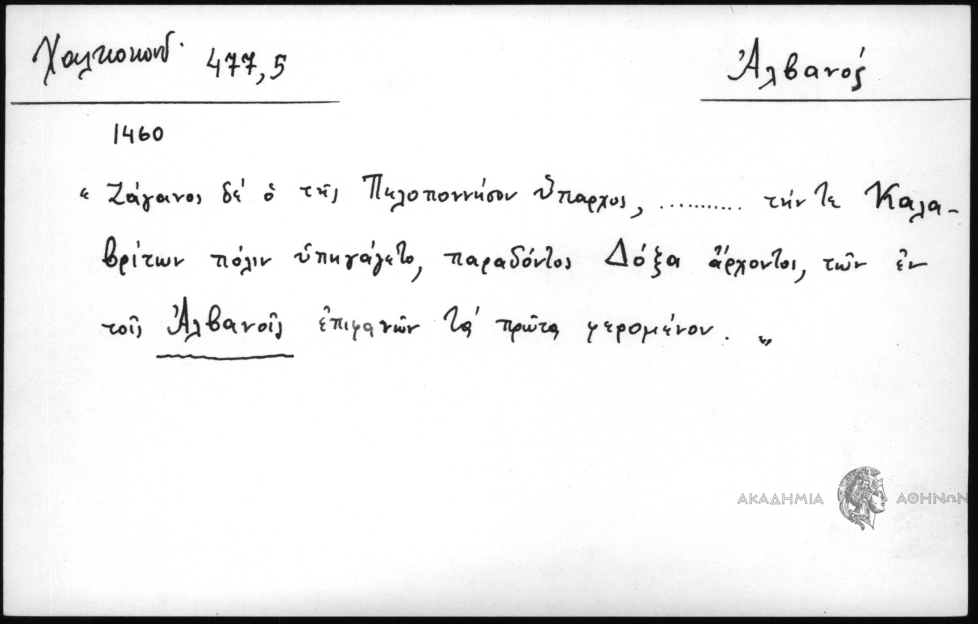 Χαλκοκονδ. 477,5 Ἀλβανός
1460
“ Ζάγανος δέ ὁ τῆς Πελοποννήσου ὕπαρχος, ........... τήν τε Καλα-
βρίτων πόλιν ὑπηγάγετο, παραδόντος Δόξα ἄρχοντος, τῶν ἐν
τοῖς Ἀλβανοῖς ἐπιφανῶν τά πρῶτα φερομένου. „
ΑΚΑΔΗΜΙΑ ΑΘΗΝΩΝ